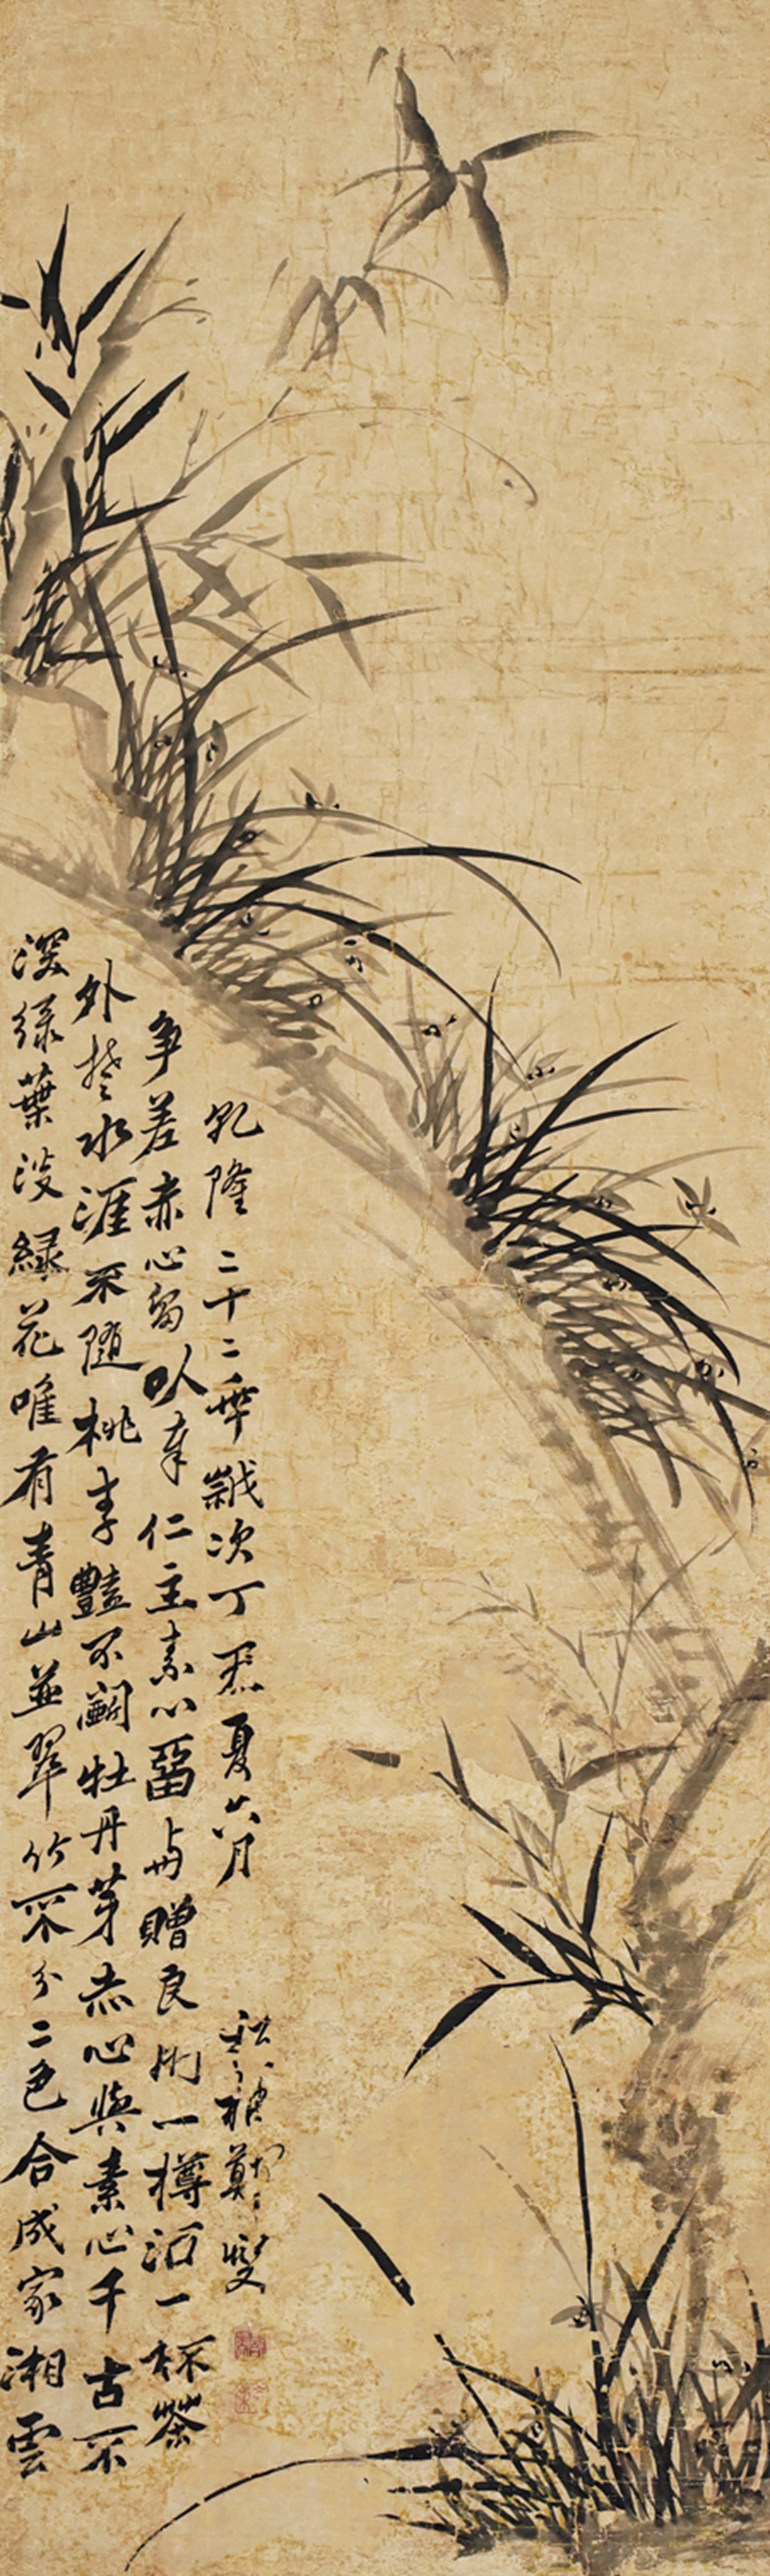 深綠葉淡綠花唯有青山並翠竹不分二色合成家湘雲
外楚水涯不隨桃李豔不鬭牡丹芽赤心與素心千古不
爭差赤心留以奉仁主素心留與贈良朋一樽酒一杯茶
乾隆二十二年歲次丁丑夏六月
板橋鄭燮